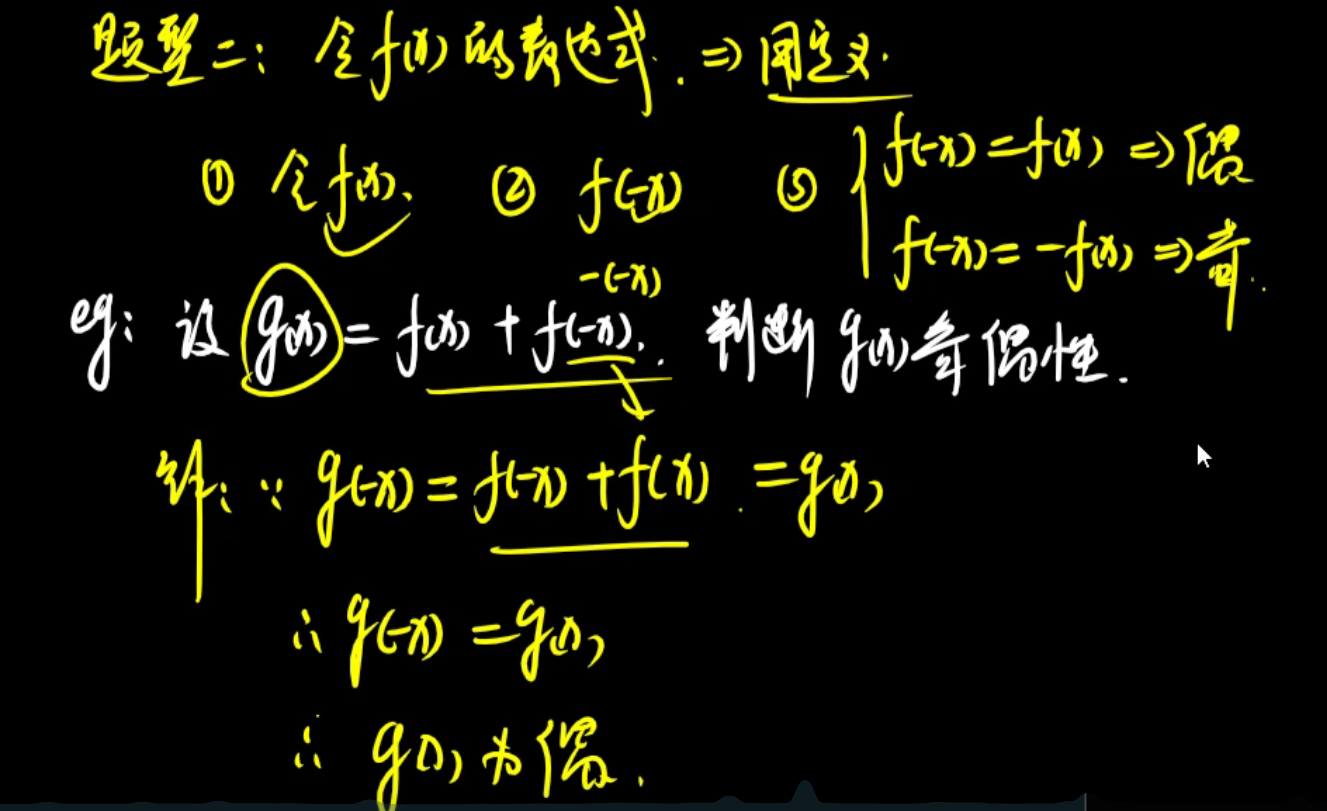 题型二: 令f(x)的表达式. ⇒ 用定义.
① 令f(x). ② f(-x) ③ { f(-x)=f(x) ⇒ 偶
f(-x)=-f(x) ⇒ 奇.
-(-x)
eg: 设 g(x) = f(x) + f(-x). 判断 g(x) 奇偶性.
解: ∵ g(-x) = f(-x) + f(x) = g(x)
∴ g(-x) = g(x)
∴ g(x) 为偶.